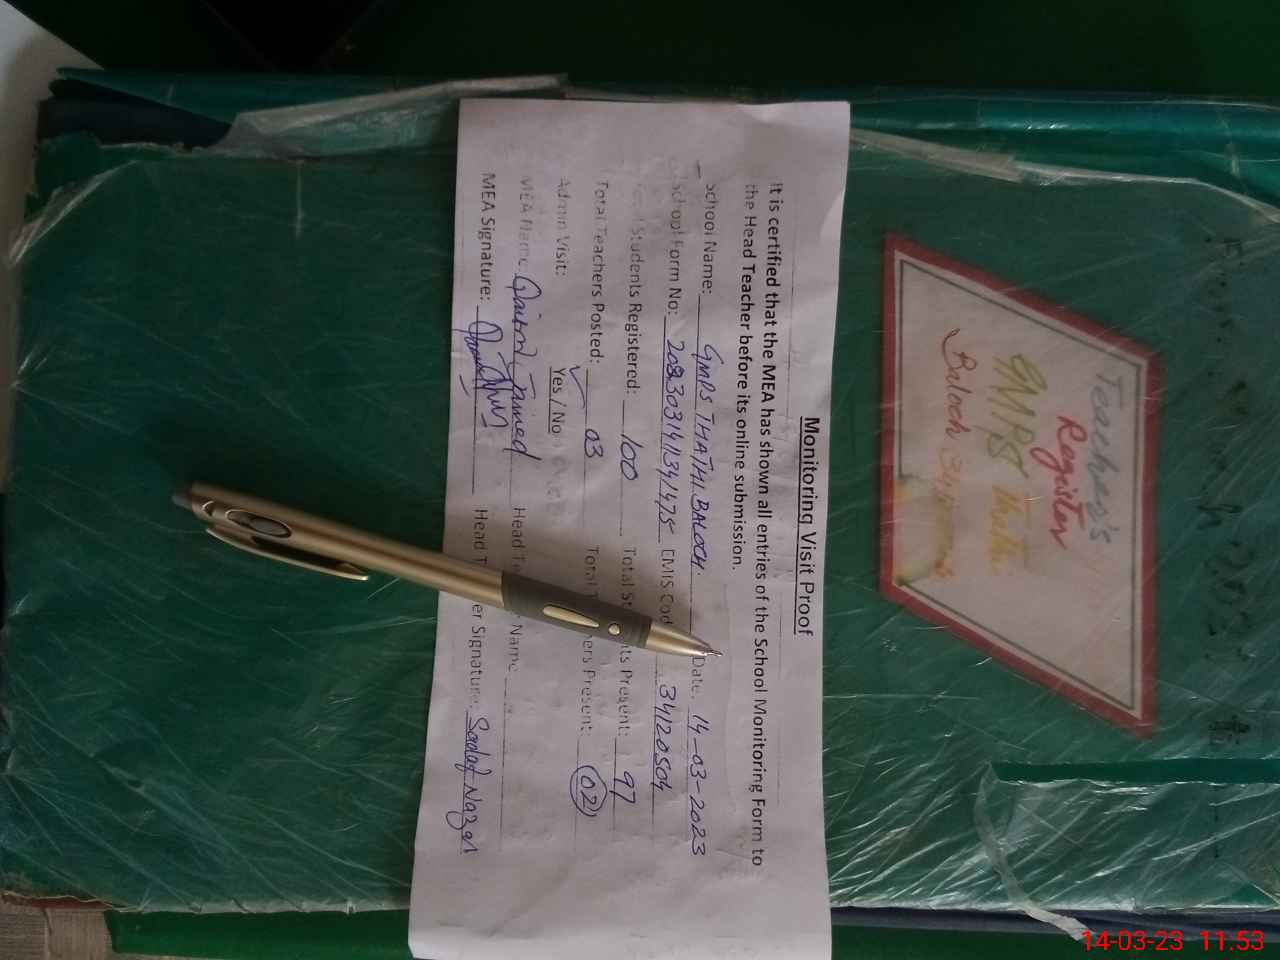 Monitoring Visit Proof
It is certified that the MEA has shown all entries of the School Monitoring Form to
the Head Teacher before its online submission.
School Name: GMPS THATHI BALOCH. Date: 14-03-2023
School Form No: EMIS Cod 34120504
Students Registered: 100 Total St ts Present: 97
Total Teachers Posted: 03 Total T ers Present: 02
Admin Visit: Yes / No
MEA Name: Head Te r Name
MEA Signature: Head T er Signature: Sadaf Nazar
Teacher's
Register
GMPS Thathi
Baloch
14-03-23 11.53